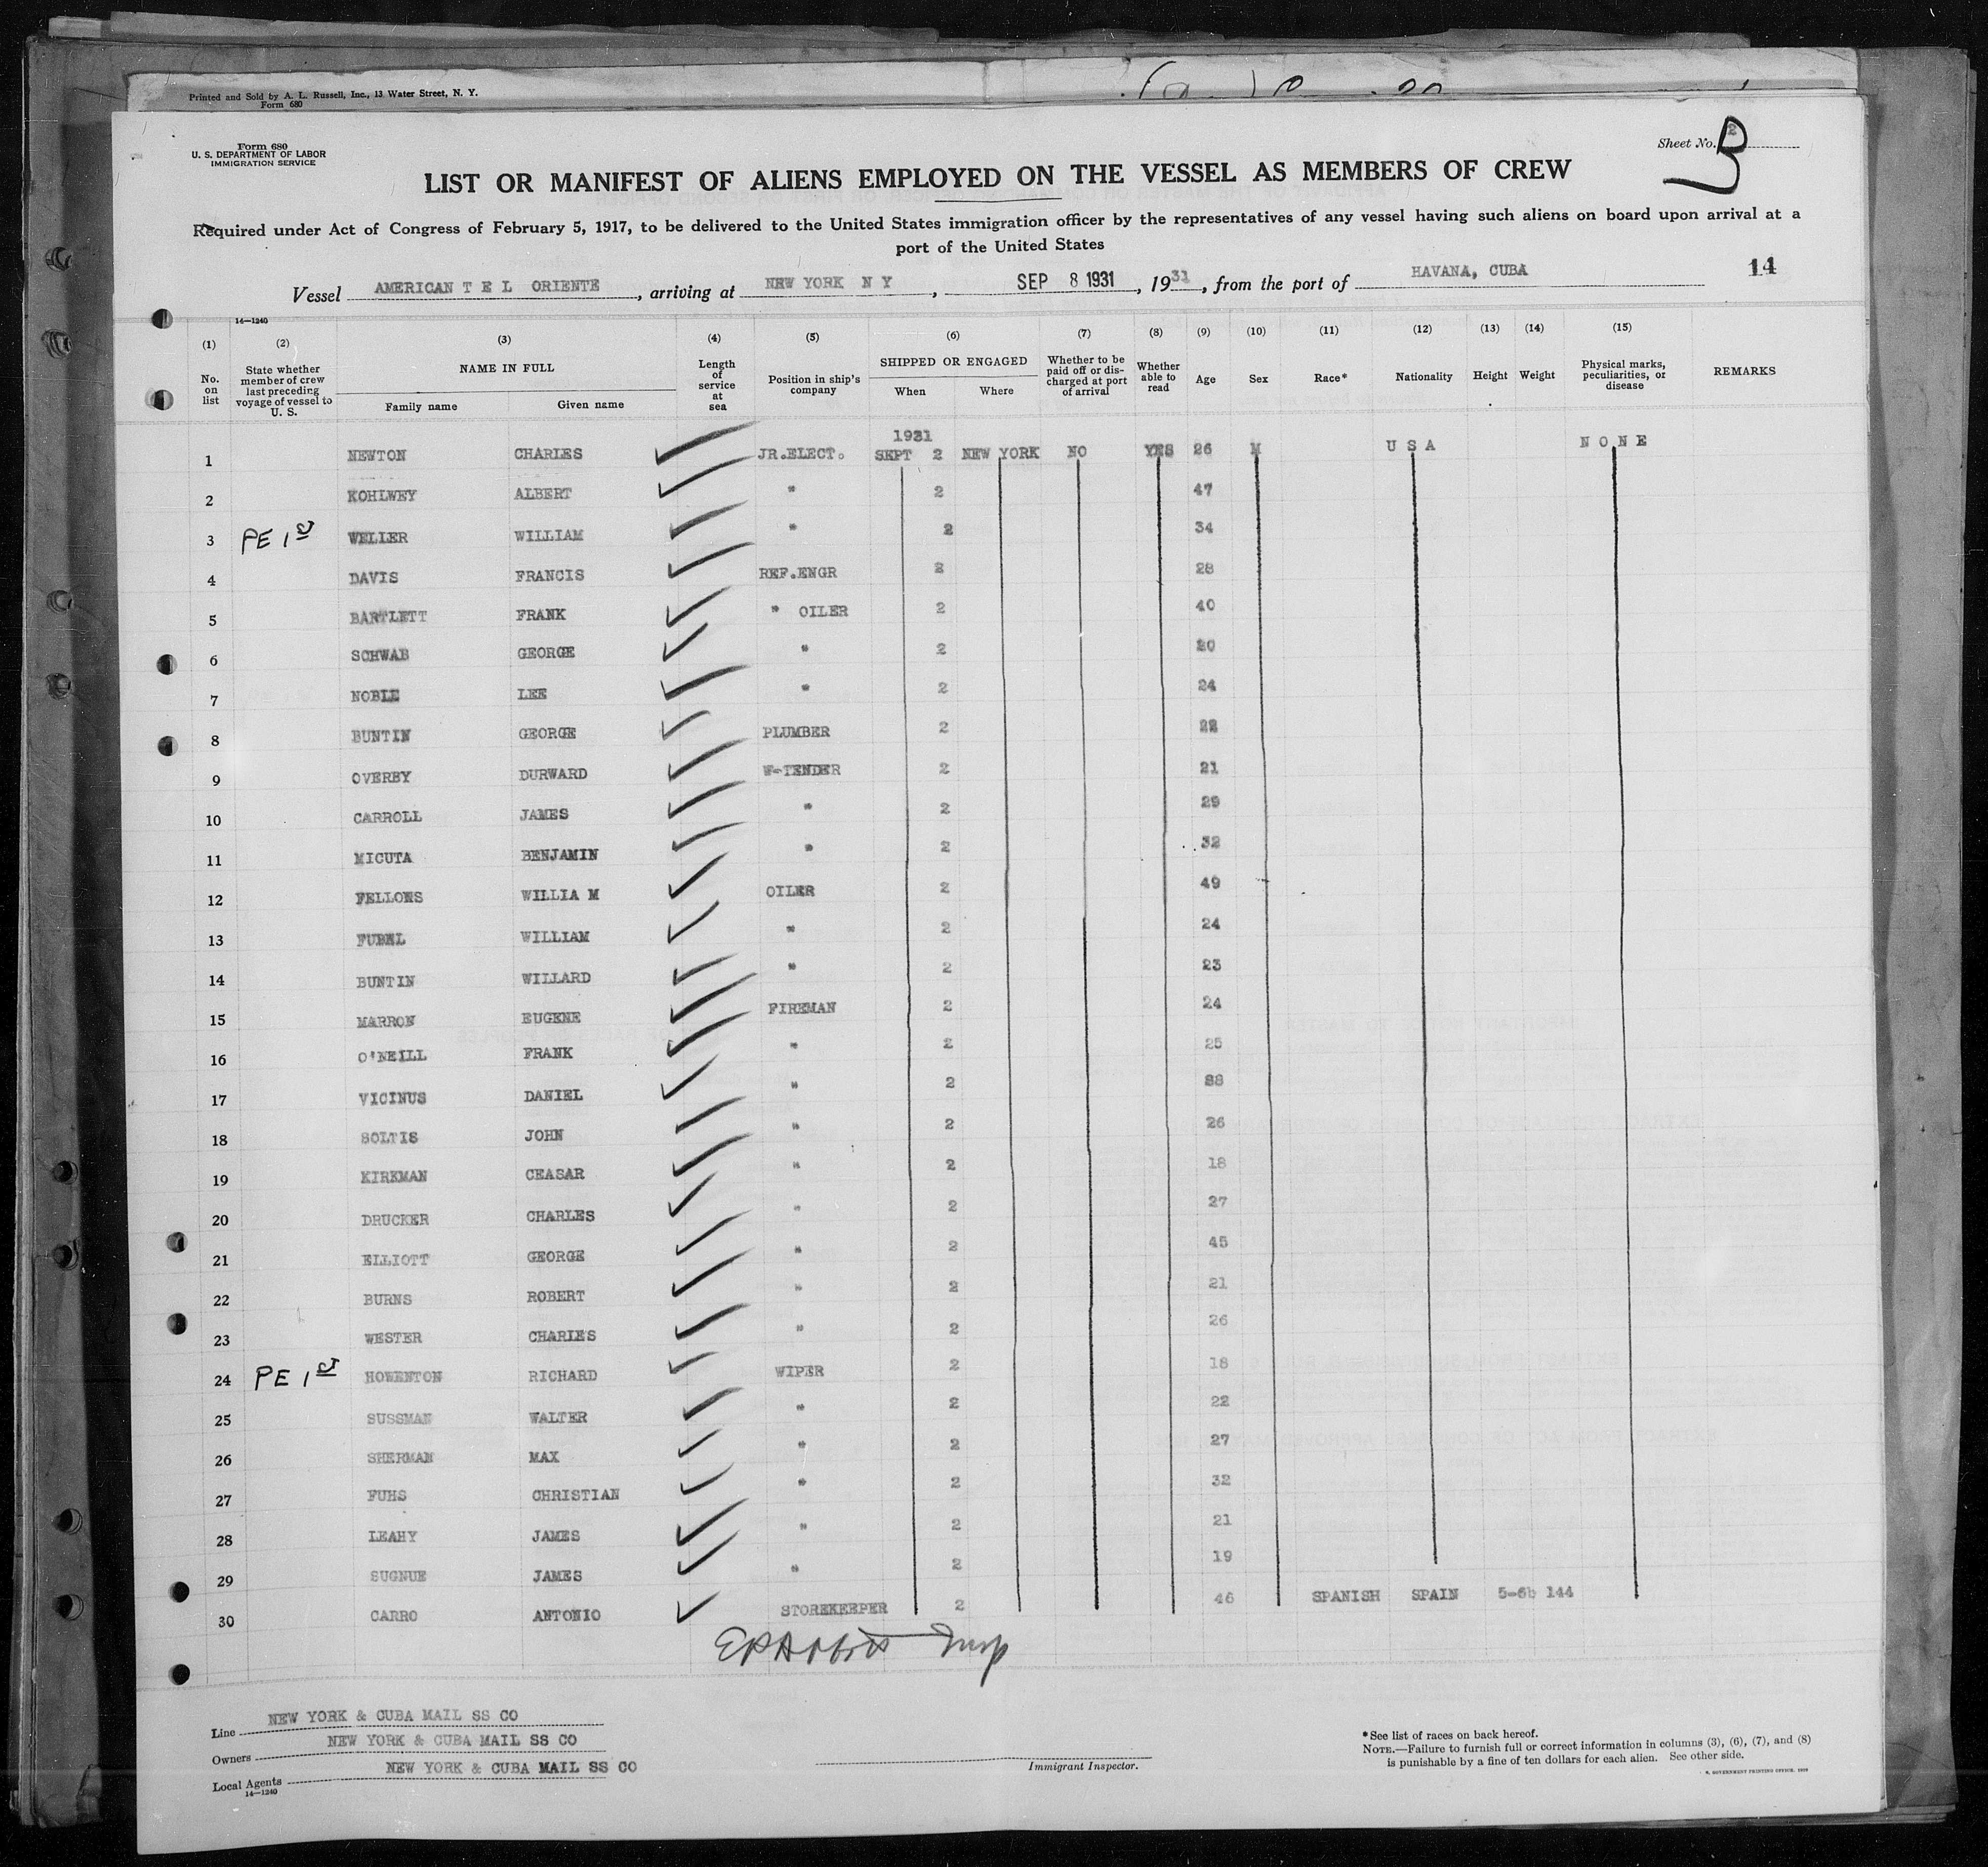 Printed and Sold by A. L. Russell, Inc., 13 Water Street, N. Y.
Form 680
Form 680
U. S. DEPARTMENT OF LABOR
IMMIGRATION SERVICE
Sheet No. 2
B
LIST OR MANIFEST OF ALIENS EMPLOYED ON THE VESSEL AS MEMBERS OF CREW
Required under Act of Congress of February 5, 1917, to be delivered to the United States immigration officer by the representatives of any vessel having such aliens on board upon arrival at a
port of the United States
14
Vessel AMERICAN T E L ORIENTE, arriving at NEW YORK N Y, SEP 8 1931, 1931, from the port of HAVANA, CUBA
14—1240
(1) (2) (3) (4) (5) (6) (7) (8) (9) (10) (11) (12) (13) (14) (15)
No. on list State whether member of crew last preceding voyage of vessel to U. S. NAME IN FULL Family name Given name Length of service at sea Position in ship's company SHIPPED OR ENGAGED When Where Whether to be paid off or discharged at port of arrival Whether able to read Age Sex Race* Nationality Height Weight Physical marks, peculiarities, or disease REMARKS
1931
1 NEWTON CHARLES JR.ELECT. SEPT 2 NEW YORK NO YES 26 M U S A N O N E
2 KOHLWEY ALBERT " 2 47
3 PE 1st WELLER WILLIAM " 2 34
4 DAVIS FRANCIS REF.ENGR 2 28
5 BARTLETT FRANK " OILER 2 40
6 SCHWAB GEORGE " 2 20
7 NOBLE LEE " 2 24
8 BUNTIN GEORGE PLUMBER 2 22
9 OVERBY DURWARD W-TENDER 2 21
10 CARROLL JAMES " 2 29
11 MICUTA BENJAMIN " 2 32
12 FELLOWS WILLIA M OILER 2 49
13 WILLIAM " 2 24
14 BUNTIN WILLARD " 2 23
15 MARRON EUGENE FIREMAN 2 24
16 O'NEILL FRANK " 2 25
17 VICINUS DANIEL " 2
18 SOLTIS JOHN " 2 26
19 KIRKMAN CEASAR " 2 18
20 DRUCKER CHARLES " 2 27
21 ELLIOTT GEORGE " 2 45
22 BURNS ROBERT " 2 21
23 WESTER CHARLES " 2 26
24 PE 1st HOWENTON RICHARD WIPER 2 18
25 SUSSMAN WALTER " 2 22
26 SHERMAN MAX " 2 27
27 FUHS CHRISTIAN " 2 32
28 LEAHY JAMES " 2 21
29 SUGNUE JAMES " 2 19
30 CARRO ANTONIO STOREKEEPER 2 46 SPANISH SPAIN 5-6½ 144
Insp
Line NEW YORK & CUBA MAIL SS CO
Owners NEW YORK & CUBA MAIL SS CO
Local Agents NEW YORK & CUBA MAIL SS CO
14—1240
Immigrant Inspector.
*See list of races on back hereof.
NOTE.—Failure to furnish full or correct information in columns (3), (6), (7), and (8)
is punishable by a fine of ten dollars for each alien. See other side.